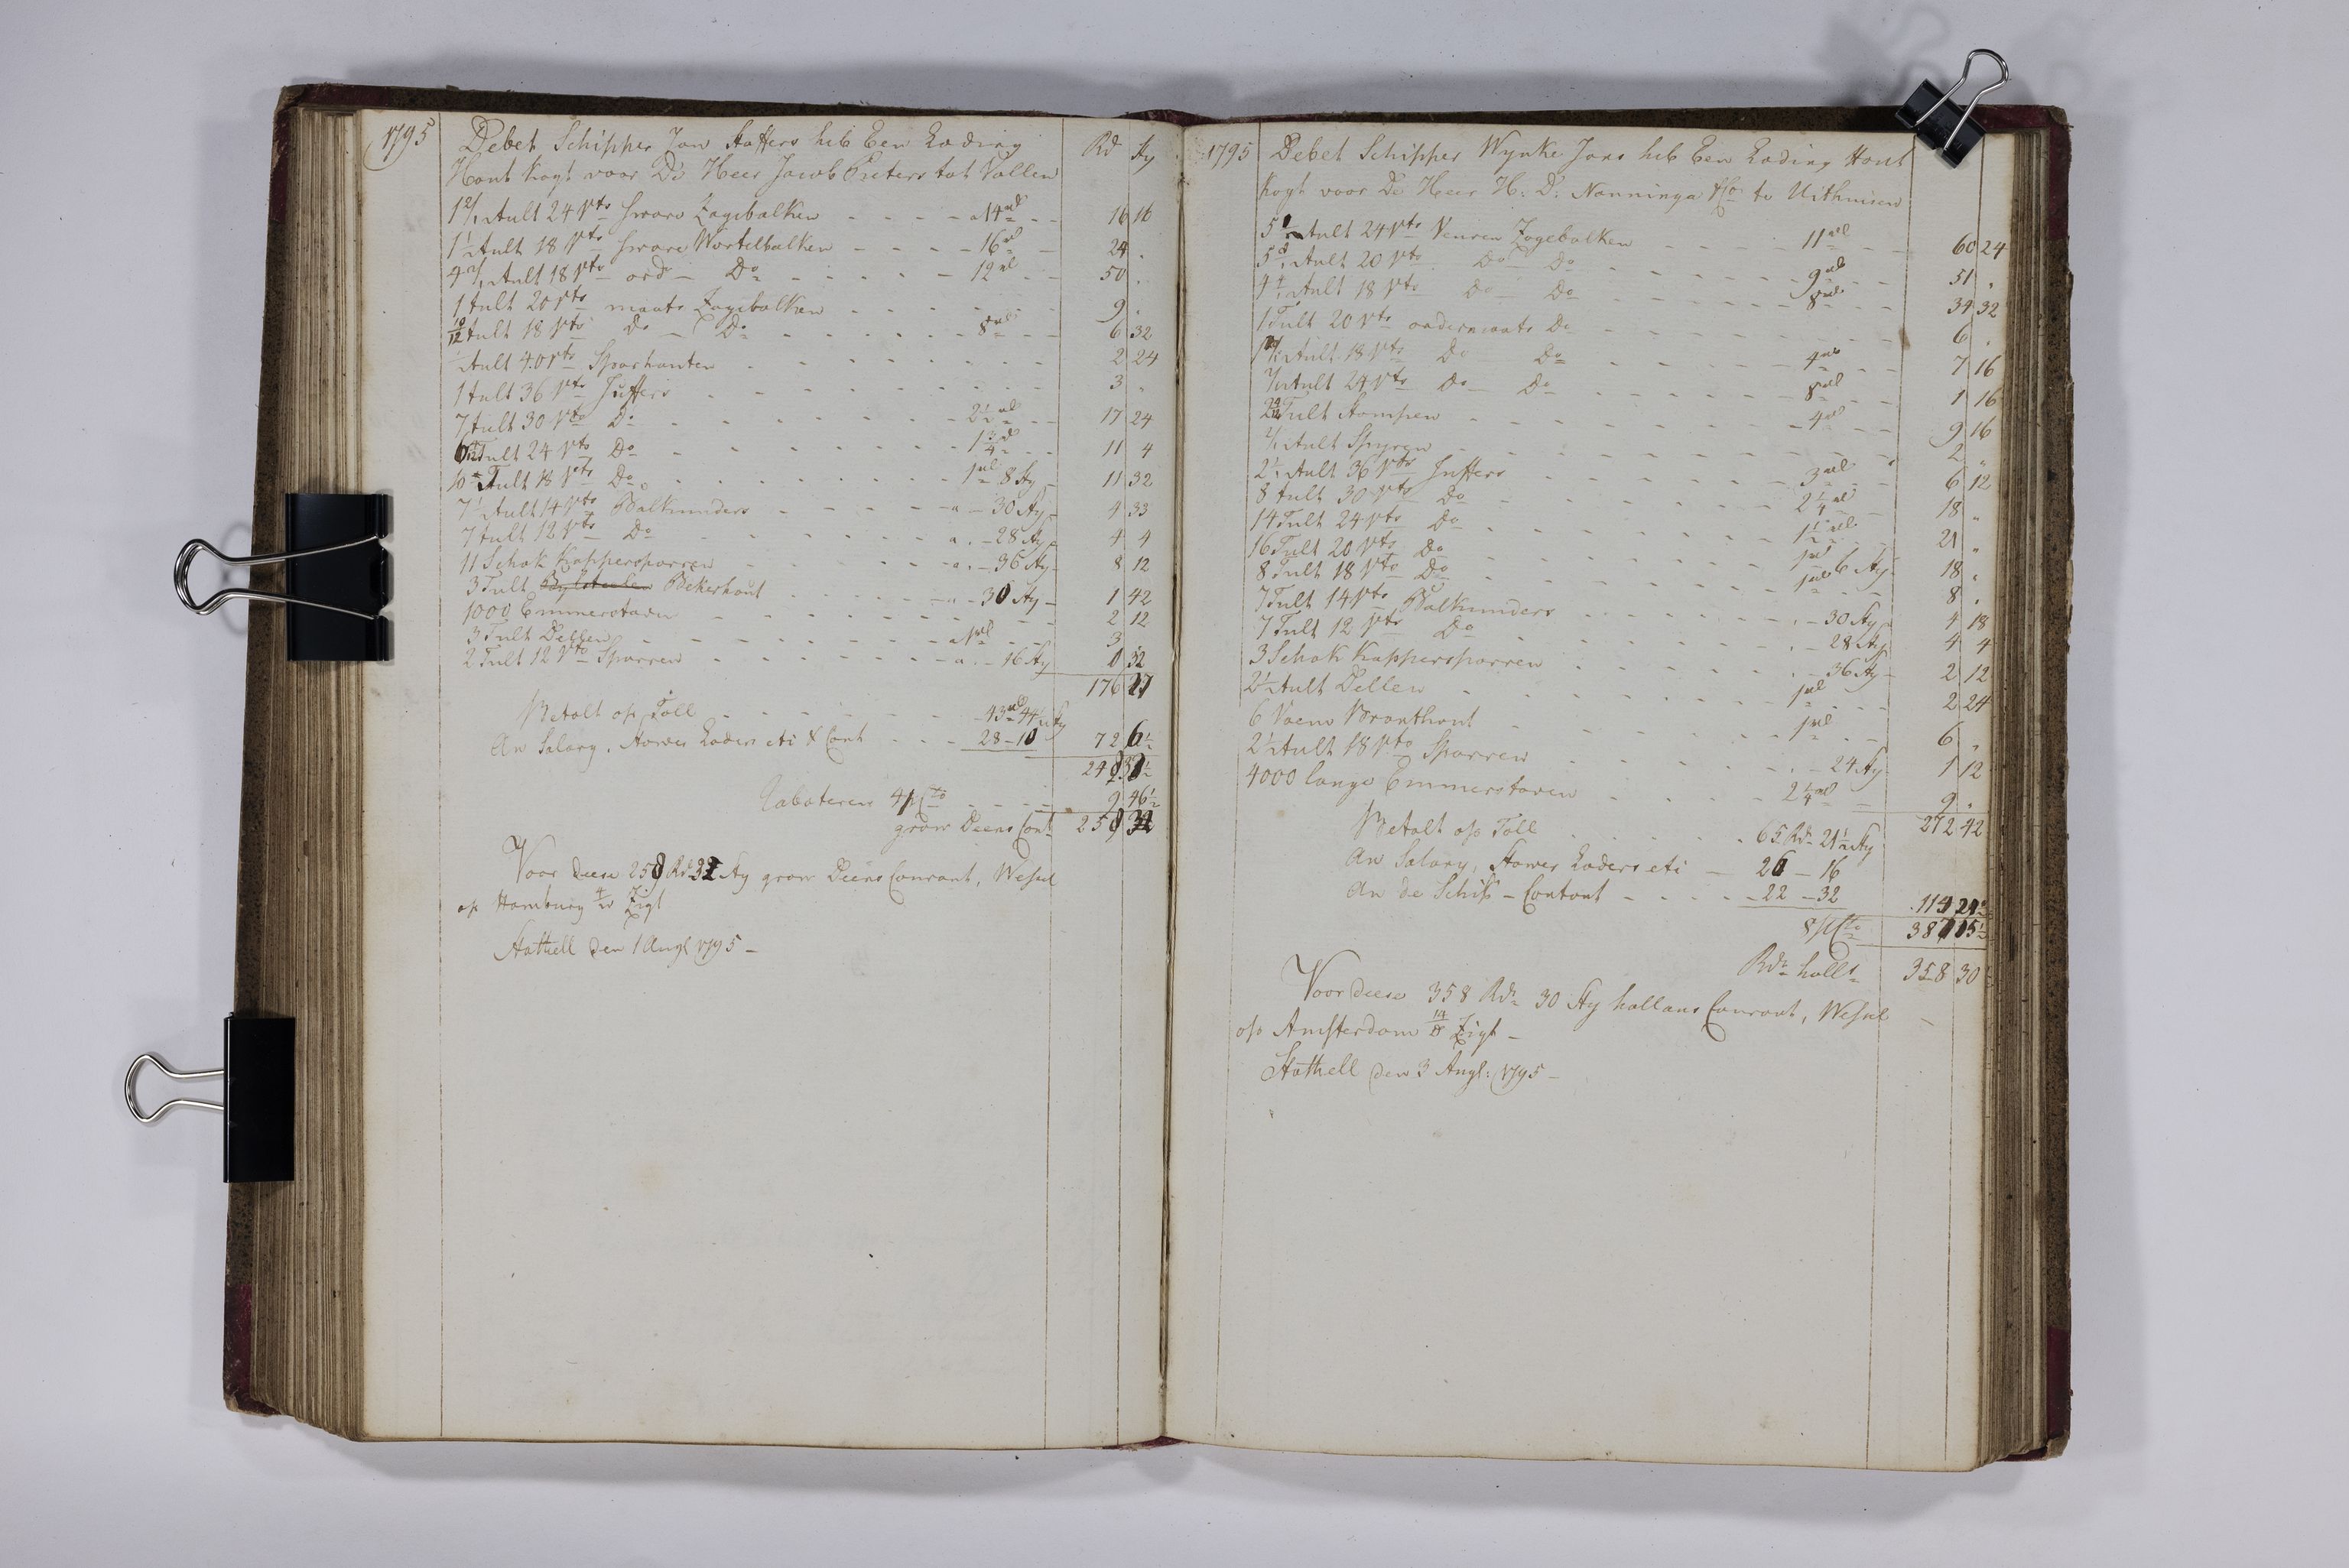 1795 Debet Schipper Jan Haffers heb Een Lading Rd Sty
Hout kogt voor De Heer Jacob Pieters tot Vollen
1 2/12 Tult 24 vto sware Zagebalken a 14 rd 16 16
1 1/2 Tult 18 vto sware Wortelbalken 16 rd 24 .
4 2/12 Tult 18 vto ord Do 12 rd 50 .
1 Tult 20 vto maats Zagebalken 9 .
10/12 Tult 18 vto Do Do 8 rd 6 32
Tult 40 vto Sparhouten 2 24
1 Tult 36 vto Juffers 3 .
7 Tult 30 vto Do 2 1/2 rd 17 24
Tult 24 vto Do 1 3/4 rd 11 4
10 Tult 18 vto Do 1 rd 8 Sty 11 32
7 1/2 Tult 14 vto Balkunders a 30 Sty 4 33
7 Tult 12 vto Do a 28 Sty 4 4
11 Schok Kappersparren a 36 Sty 8 12
3 Tult Bekerhout a 30 Sty 1 42
1000 Emmerstaven 2 12
3 Tult Dellen a 1 rd 3
2 Tult 12 vto Sparren a 16 Sty 0 32
176 27
Betalt op Toll 43 rd 44 1/2 Sty
An Salary, Stower Laders etc & Cont 28 - 10 72 6 1/2
Rabateren 4 p Cto 9 46 1/2
grow Deens Cont
Voor deese Rd Sty grow Deens Courant, Wessel
op Hamburg Zigt
Stathell den 1 Augl 1795
1795 Debet Schipper Wynke Jans heb Een Lading Hout
kogt voor De Heer H: D: Nanninga & Co to Uithuisen
5 1/2 Tult 24 vto Veuren Zagebalken 11 rd 60 24
5 Tult 20 vto Do Do 9 rd 51 "
4 Tult 18 vto Do Do 8 rd 34 32
1 Tult 20 vto ondermaats Do 6 .
Tult 18 vto Do Do 4 rd 7 16
2/12 Tult 24 vto Do Do 8 rd 1 16
Tult Stompen 4 rd 9 16
Tult Spyren 2 "
2 1/12 Tult 36 vto Juffers 3 rd 6 12
8 Tult 30 vto Do 2 1/4 rd 18 "
14 Tult 24 vto Do 1 1/2 rd 21 "
16 Tult 20 vto Do 1 rd 6 Sty 18 .
8 Tult 18 vto Do 1 rd 8 .
7 Tult 14 vto Balkunders 30 Sty 4 18
7 Tult 12 vto Do 28 Sty 4 4
3 Schok Kappersparren 36 Sty 2 12
2 1/2 Tult Dellen 1 rd 2 24
6 Vaem Branthout 1 rd 6 "
2 1/2 Tult 18 vto Sparren 24 Sty 1 12
4000 lange Emmerstaven 2 1/4 rd 9 .
272 42
Betalt op Toll 65 Rd 21 1/2 Sty
An Salary, Stower Laders etc 26 - 16
An de Schip - Contont 22 - 32 114 21 1/2
8 p Cto 387 15 1/2
Rdr holls 358 30
Voor deese 358 Rdr 30 Sty hollans Courant, Wessel
op Amsterdam Zigt
Stathell den 3 Augl: 1795